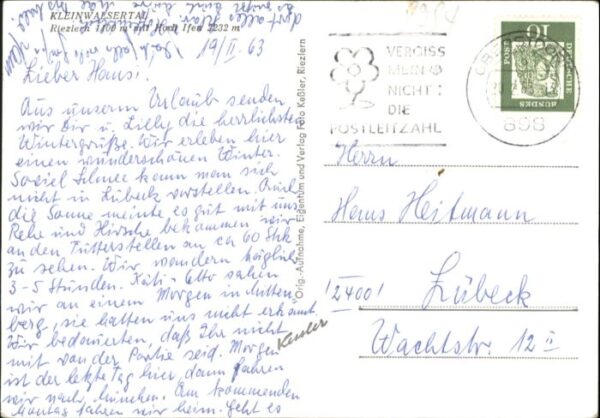 KLEINWALSERTAL
Riezlern 1100 m mit Hoch Ifen 2232 m
19/II. 63
Lieber Hans!
Aus unserm Urlaub senden
wir Dir u. Lilly die herrlichsten
Wintergrüße. Wir erleben hier
einen wunderschönen Winter.
Soviel Schnee kann man sich
nicht in Lübeck vorstellen. Auch
die Sonne meinte es gut mit uns
Rehe und Hirsche bekommen wir
an den Futterstellen an ca 60 Stk
zu sehen. Wir wandern täglich
3-5 Stunden. Käti-Otto sahen
wir an einem Morgen in Mittel
berg, sie hatten uns nicht erkannt.
Wir bedauerten, daß Ihr nicht
mit von der Partie seid. Morgen
ist der letzte Tag hier, dann fahren
wir nach München. Am kommenden
Montag fahren wir heim. Geht es
Kessler
Orig.-Aufnahme, Eigentum und Verlag Foto Keßler, Riezlern
VERGISS
MEIN
NICHT:
DIE
POSTLEITZAHL
898
DEUTSCHE
BUNDES
POST
10
Herrn
Hans Heitmann
(2400) Lübeck
Wachtstr. 12 II